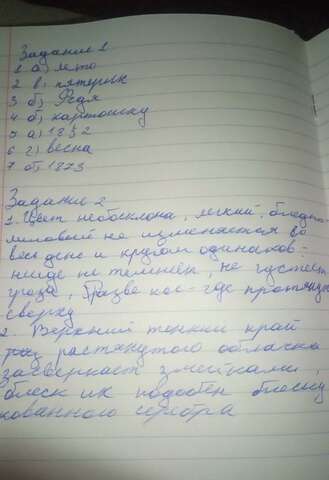 Задание 1
1 а) лето
2 в) пятерых
3 б) Федя
4 б) картошку
5 а) 1852
6 г) весна
7 б) 1873
Задание 2
1. Цвет небосклона, легкий, бледно-
лиловый не изменяется во
весь день и кругом одинаков:
нигде не темнеет, не густеет
гроза, разве кое-где протянут
сверху
2. Верхний тонкий край
растянутого облачка
засверкает змейками,
блеск их подобен блеску
кованного серебра